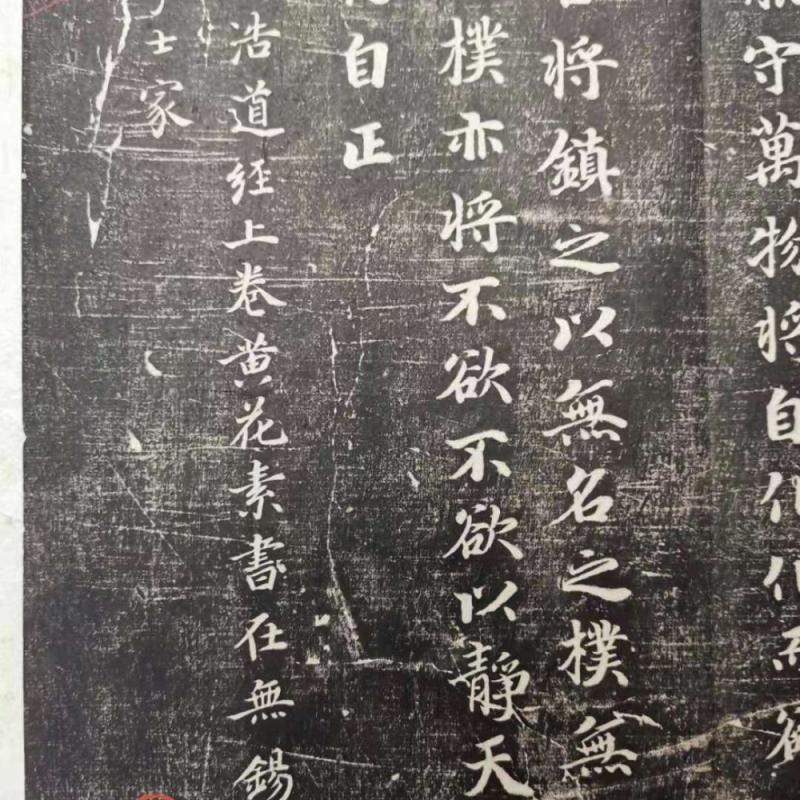 守萬物將自化化而
將鎮之以無名之樸無
樸亦將不欲不欲以靜天
自正
浩道經上卷黃花素書在無錫
士家